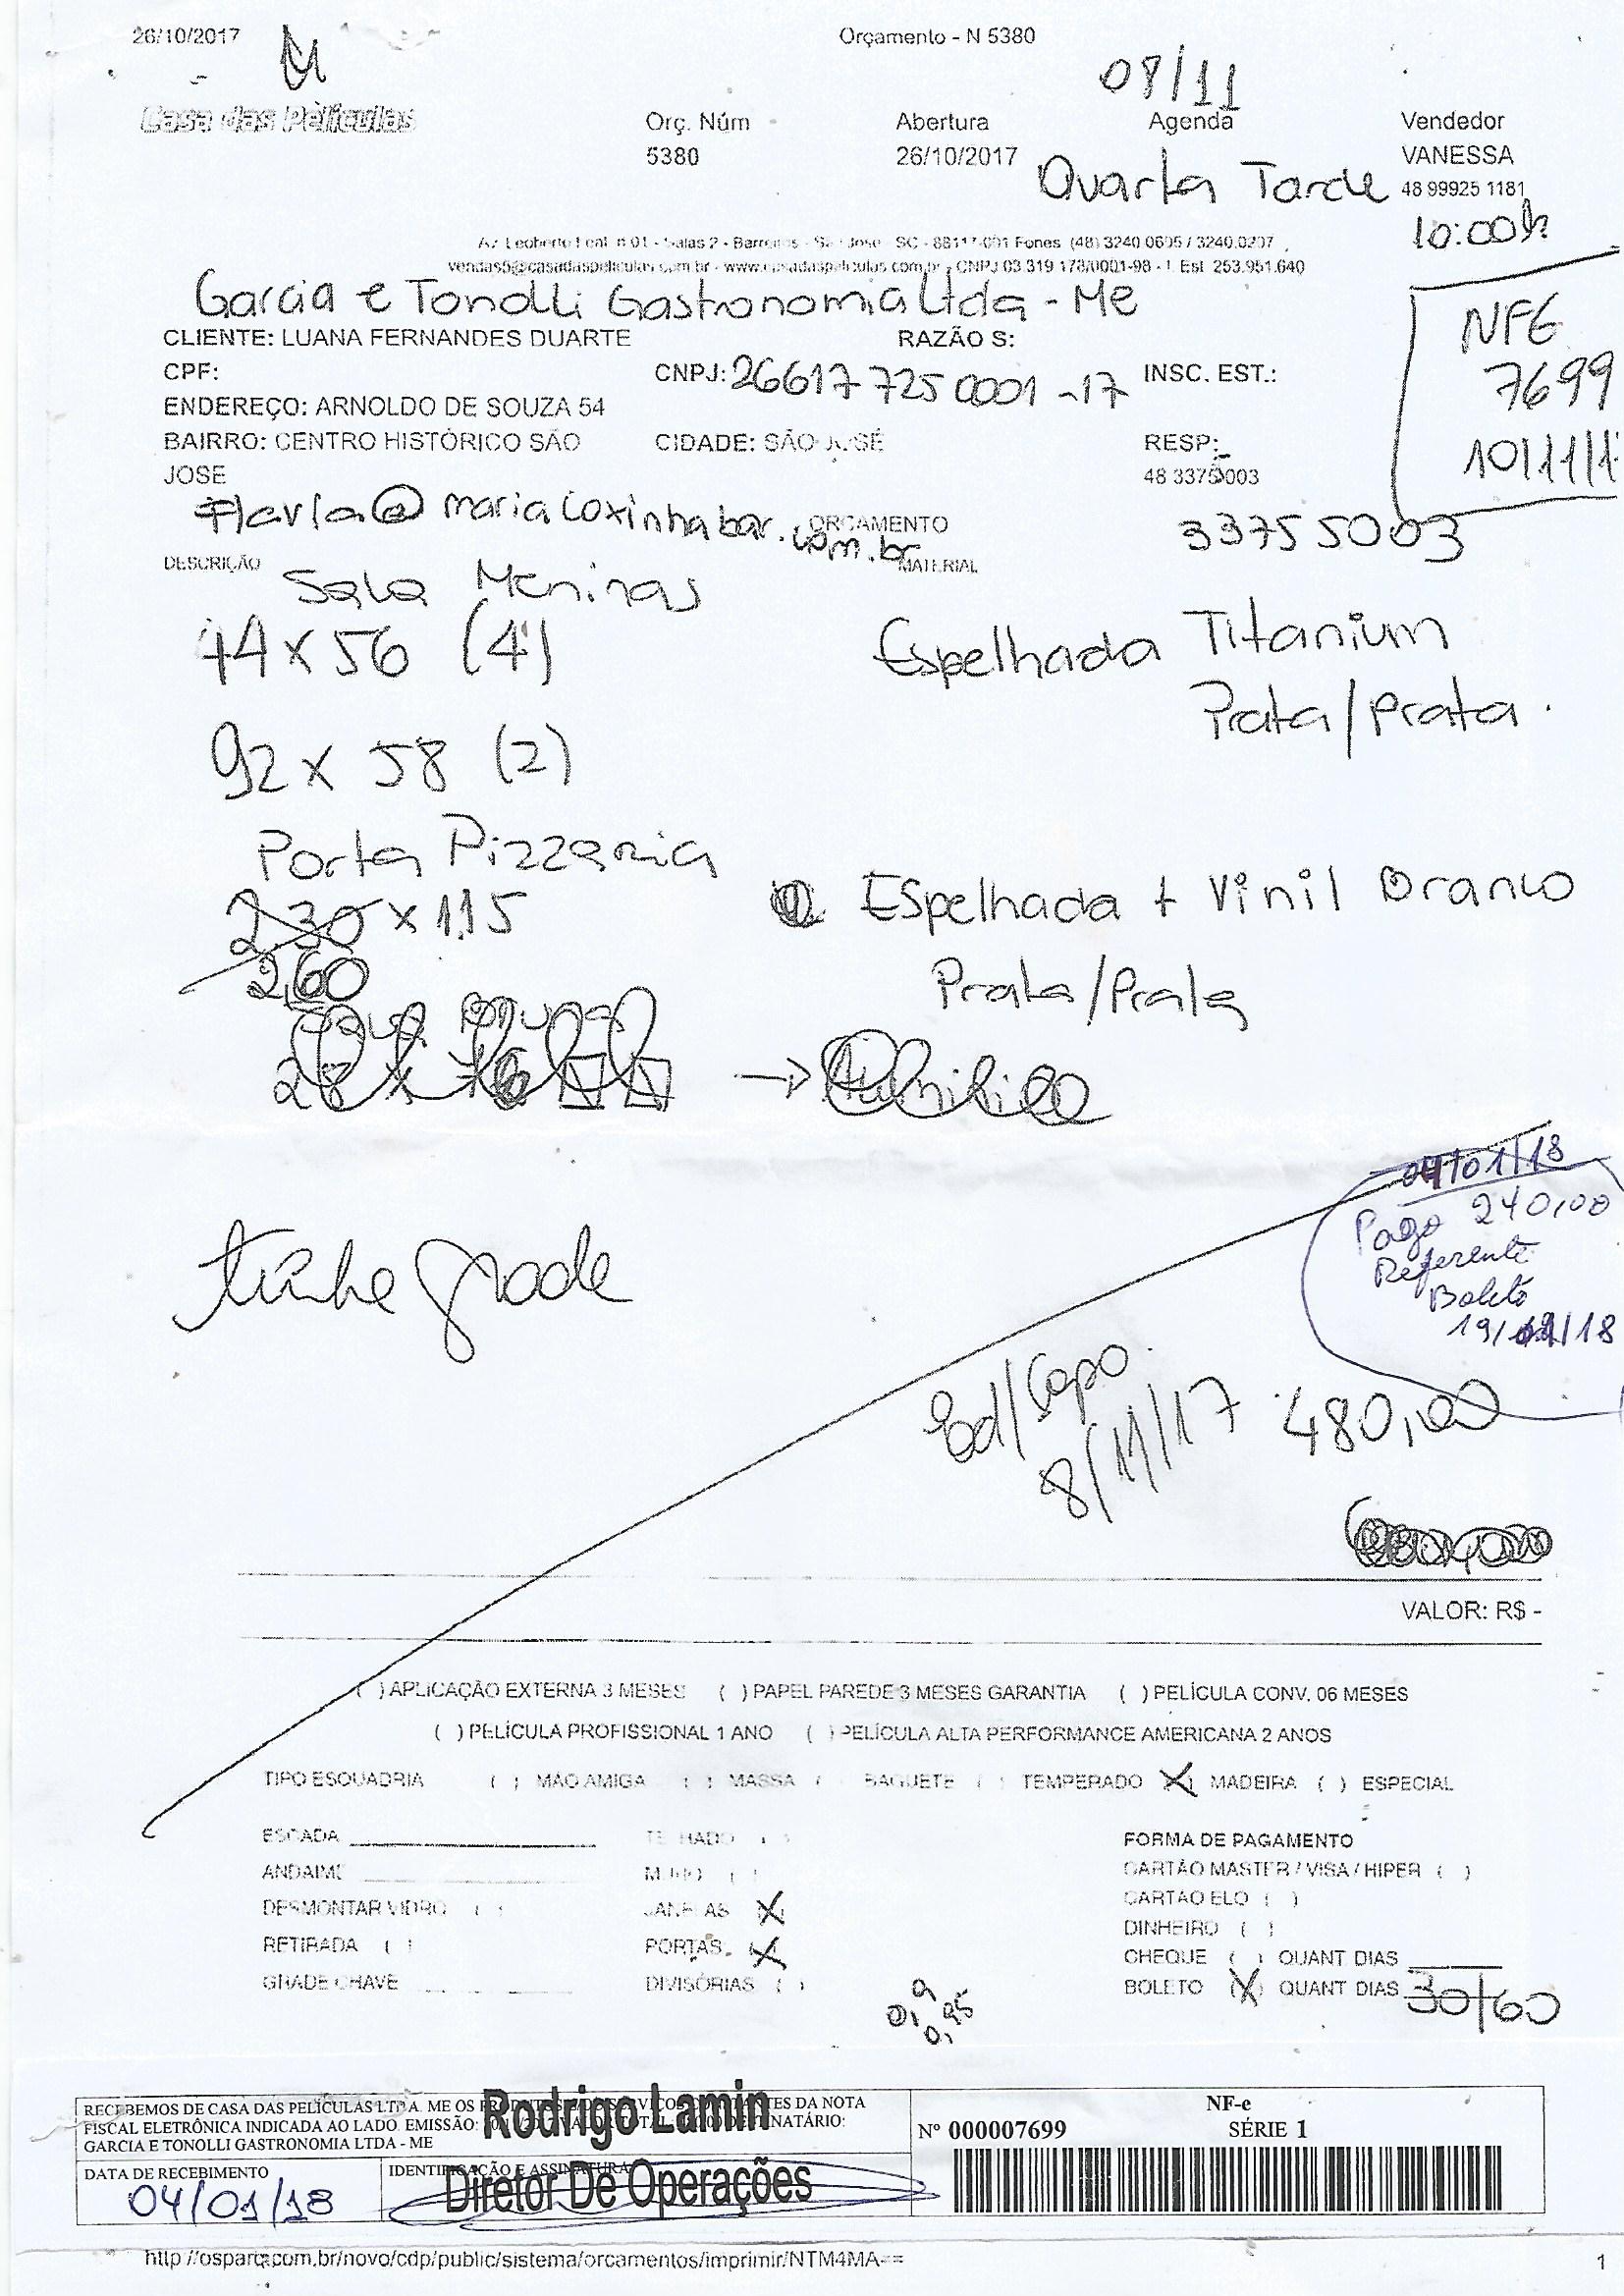 26/10/2017
Orçamento - N 5380
08/11
Casa das Películas
Orç. Núm
Abertura
Agenda
Vendedor
5380
26/10/2017
VANESSA
Quarta Tarde
48 99925 1181
10:00h
Salas 2 - Barreiros - São José - SC - 88117-001 Fones (48) 3240.0605 / 3240.0207
vendas5@casadaspeliculas.com.br - www.casadaspeliculas.com.br - CNPJ 03.319.178/0001-98 - I. Est. 253.951.640
Garcia e Tonolli Gastronomia Ltda - Me
NFE
7699
CLIENTE: LUANA FERNANDES DUARTE
RAZÃO S:
CPF:
CNPJ: 26617725 0001-17
INSC. EST.:
ENDEREÇO: ARNOLDO DE SOUZA 54
BAIRRO: CENTRO HISTÓRICO SÃO JOSE
CIDADE: SÃO JOSÉ
RESP:
48 33755003
Flavia@mariacoxinhabar.com.br
ORÇAMENTO
33755003
DESCRIÇÃO
MATERIAL
Sala Meninas
44 x 56 (4)
Espelhada Titanium
Prata/Prata.
92 x 58 (2)
Porta Pizzaria
2,30 x 1,15
Espelhada + Vinil Branco
2,60
Prata/Prata
04/01/18
Pago 240,00
Referente
Boleto
tinha grade
8/11/17
480,00
VALOR: R$ -
( ) APLICAÇÃO EXTERNA 3 MESES ( ) PAPEL PAREDE 3 MESES GARANTIA ( ) PELÍCULA CONV. 06 MESES
( ) PELÍCULA PROFISSIONAL 1 ANO ( ) PELÍCULA ALTA PERFORMANCE AMERICANA 2 ANOS
TIPO ESQUADRIA ( ) MÃO AMIGA ( ) MASSA ( ) BAGUETE ( ) TEMPERADO (X) MADEIRA ( ) ESPECIAL
ESCADA
TELHADO ( )
FORMA DE PAGAMENTO
ANDAIME
MURO ( )
CARTÃO MASTER / VISA / HIPER ( )
DESMONTAR VIDRO ( )
JANELAS (X)
CARTÃO ELO ( )
DINHEIRO ( )
RETIRADA ( )
PORTAS (X)
CHEQUE ( ) QUANT DIAS
GRADE CHAVE
DIVISÓRIAS ( )
BOLETO (X) QUANT DIAS 30/60
0,9
0,95
RECEBEMOS DE CASA DAS PELÍCULAS LTDA. ME OS
DA NOTA
FISCAL ELETRÔNICA INDICADA AO LADO. EMISSÃO:
GARCIA E TONOLLI GASTRONOMIA LTDA - ME
Rodrigo Lamin
NF-e
Nº 000007699
SÉRIE 1
DATA DE RECEBIMENTO
IDENTIFICAÇÃO E ASSINATURA
04/01/18
Diretor De Operações
http://osparq.com.br/novo/cdp/public/sistema/orcamentos/imprimir/NTM4MA==
1